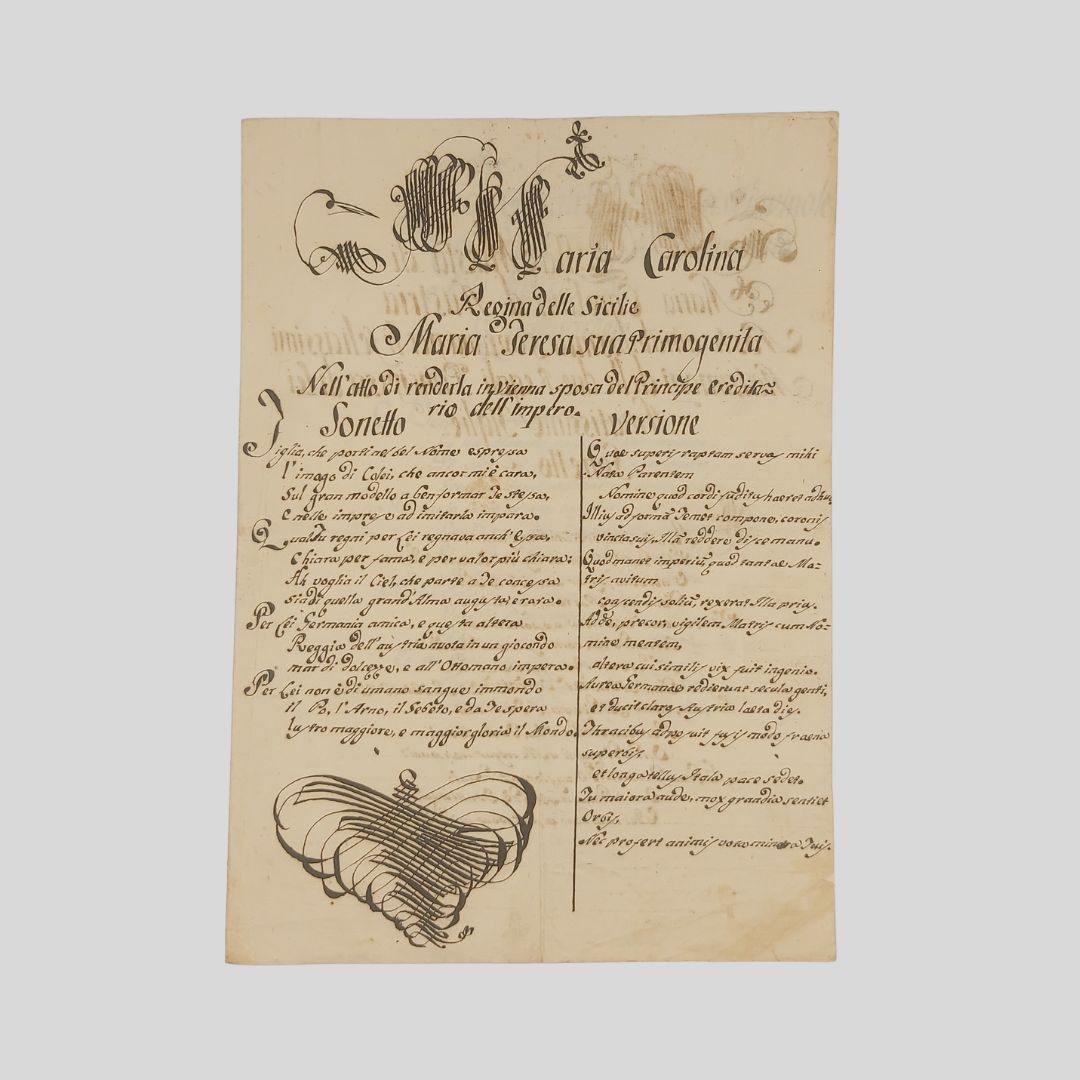 Maria Carolina
Regina delle Sicilie
Maria Teresa sua Primogenita
Nell'atto di renderla in Vienna sposa del Principe eredita=
rio dell'impero.
Sonetto
Figlia, che porti nel bel Nome espressa
l'imago di Colei, che ancor mi è cara,
Sul gran modello a ben formar Te stessa,
e nelle imprese ad imitarla impara.
Qual Tu regni per Lei regnava anch'Essa,
Chiara per fama, e per valor più chiara:
Ah voglia il Ciel, che parte a Te concessa
sia di quella grand'Alma augusta, e rara.
Per Lei Germania amica, e questa altera
Reggia dell'austria nuota in un giocondo
mar di dolcezze, e all'Ottomano impera.
Per Lei non è di umano sangue immondo
il Po, l'Arno, il Sebeto, e da Te spera
lustro maggiore, e maggior gloria il Mondo.
Versione
Quae superis raptam servas mihi
Nata Parentem
Nomine, quod cordi fuditus haeret adhuc,
Illius ad formã Temet compone, coronis
vincta suis, Illã reddere disce manu.
Quod manet imperiũ, quod tantae Ma=
tris avitum
conscendis soliũ, rexerat Illa prius.
Adde, precor, vigilem Matris cum No=
mine mentem,
altera cui similis vix fuit ingenio.
Aurea Germanae redierunt secula genti,
et ducit claros Austria laeta dies.
Thracibus adposuit fusis modo fraena
superbis,
et longa tellus Itala pace sedet.
Tu maiora aude, mox grandia sentiet
Orbis,
Nec profert animis vota minora Tuis.